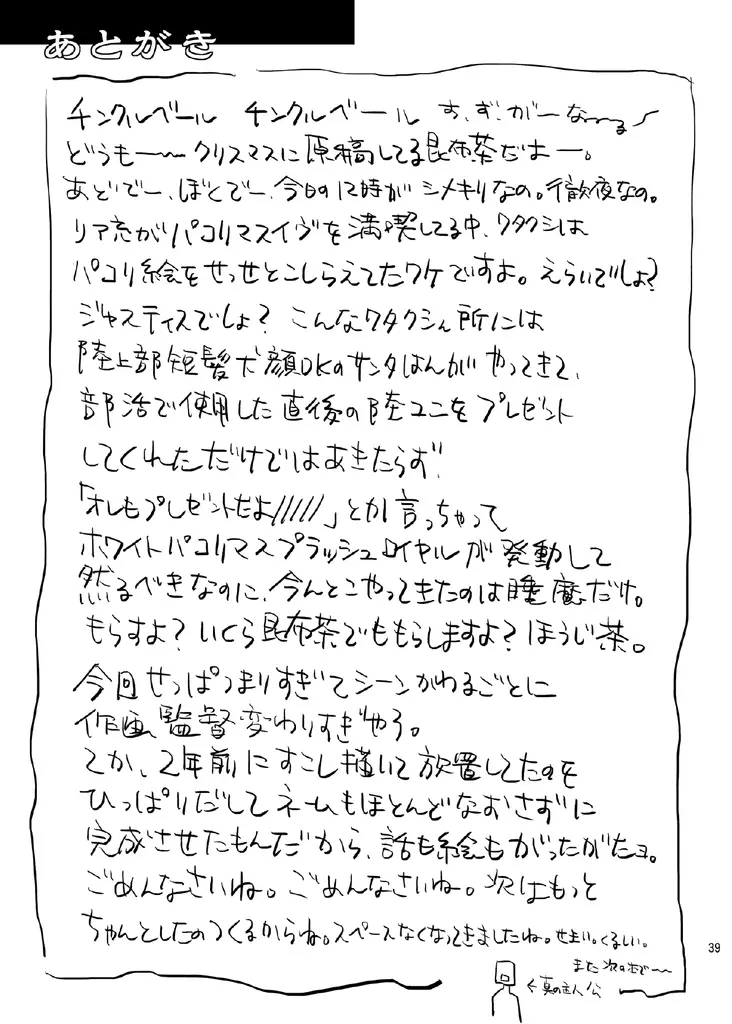 あとがき
チンクルベール チンクルベール す、ず、が、なーる
どうもーークリスマスに原稿してる昆布茶だはー。
あどでー、ぼとでー、今日の12時がシメキリなの。徹夜なの。
リア充がパコリマスイヴを満喫してる中、ワタクシは
パコリ絵をせっせとこしらえてたワケですよ。えらいでしょ?
ジャスティスでしょ? こんなワタクシん所には
陸上部短髪犬顔DKのサンタはんがやってきて、
部活で使用した直後の陸ユニをプレゼント
してくれただけではあきたらず、
「オレもプレゼントだよ/////」とか言っちゃって
ホワイトパコリマスプラッシュロイヤルが発動して
然るべきなのに、今んとこやってきたのは睡魔だけ。
もらすよ? いくら昆布茶でももらしますよ? ほうじ茶。
今回せっぱつまりすぎてシーンがわるごとに
作画監督変わりすぎやろ。
てか、2年前にすこし描いて放置してたのを
ひっぱりだしてネームもほとんどなおさずに
完成させたもんだから、話も絵もがったがたョ。
ごめんなさいね。ごめんなさいね。次はもっと
ちゃんとしたのつくるからね。スペースなくなってきましたね。せまい。くるしい。
また次の本でーー
←真の主人公
39